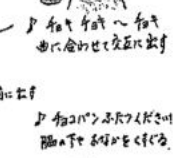 ♪ チョキ チョキ 〜 チョキ
曲に合わせて交互に出す
前に出す
♪ チョコパンふたつください!
脇の下や おなかをくすぐる。